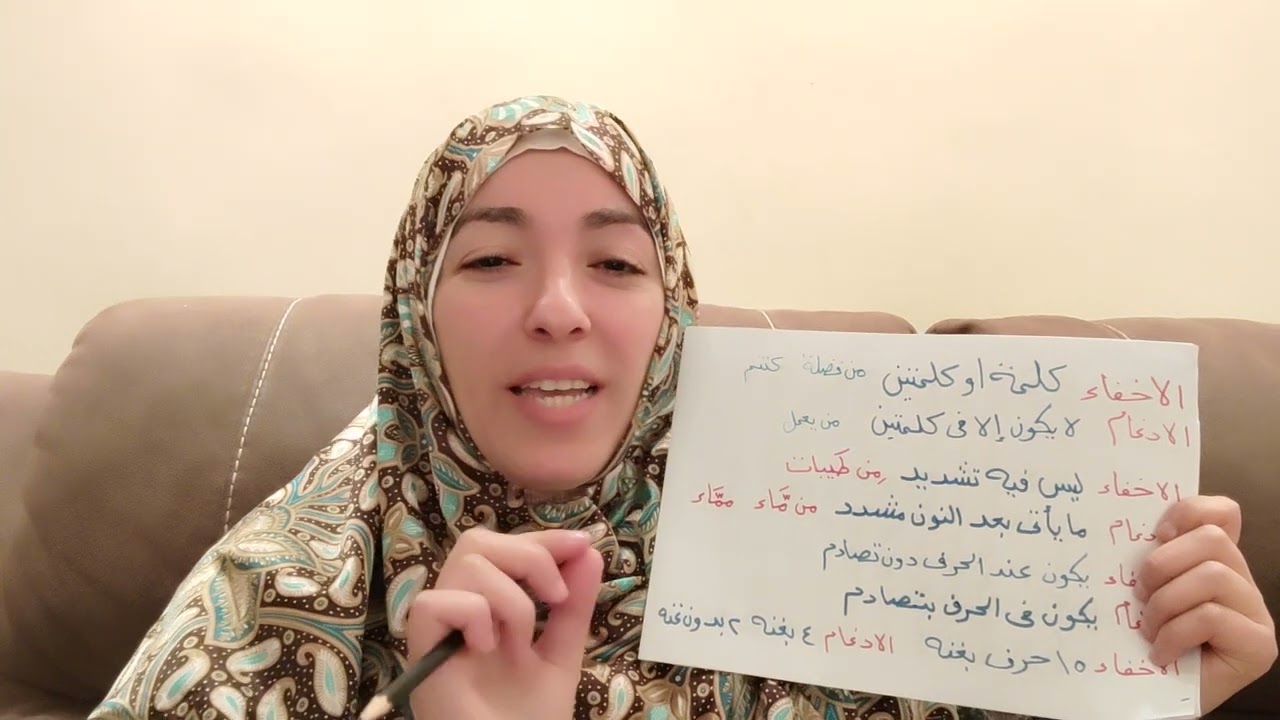 الاخفاء كلمة او كلمتين من فضله كنتم
الادغام لا يكون إلا فى كلمتين من يعمل
الاخفاء ليس فيه تشديد من طيبات
دغام ما يأتى بعد النون مشدد من مَّاء ممَّاء
فاء يكون عند الحرف دون تصادم
غام يكون فى الحرف بتصادم
الاخفاء ١٥ حرف بغنه الادغام ٤ بغنه ٢ بدون غنه